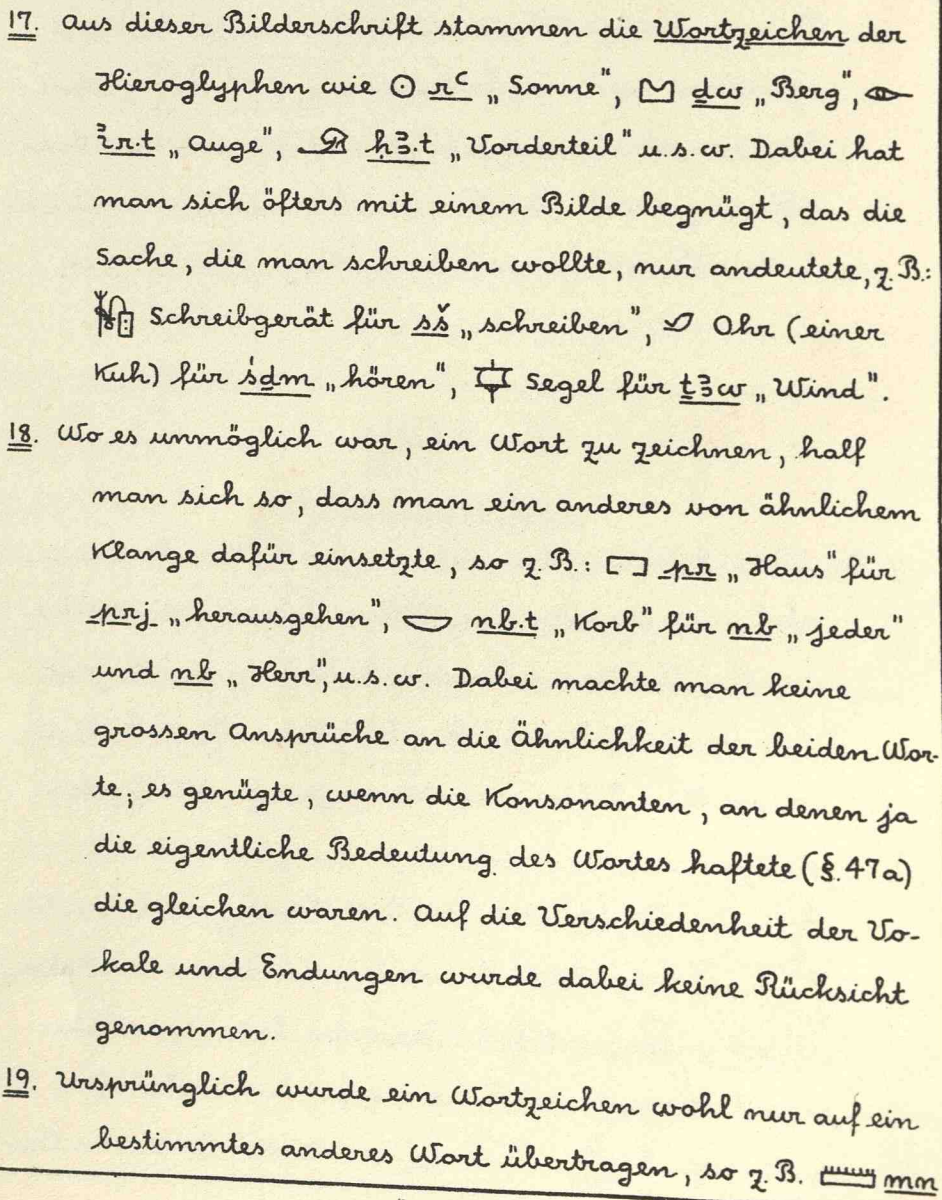 17. Aus dieser Bilderschrift stammen die Wortzeichen der
Hieroglyphen wie 𓇳 rꜥ „Sonne", 𓈋 ḏw „Berg", 𓁹
ỉr·t „Auge", 𓄂 ḥꜣ·t „Vorderteil" u.s.w. Dabei hat
man sich öfters mit einem Bilde begnügt, das die
Sache, die man schreiben wollte, nur andeutete, z.B.:
𓏞 Schreibgerät für sš „schreiben", 𓄔 Ohr (einer
Kuh) für śḏm „hören", 𓊡 Segel für ṯꜣw „Wind".
18. Wo es unmöglich war, ein Wort zu zeichnen, half
man sich so, dass man ein anderes von ähnlichem
Klange dafür einsetzte, so z.B.: 𓉐 pr „Haus" für
prj „herausgehen", 𓎟 nb·t „Korb" für nb „jeder"
und nb „Herr", u.s.w. Dabei machte man keine
grossen Ansprüche an die Ähnlichkeit der beiden Wor-
te; es genügte, wenn die Konsonanten, an denen ja
die eigentliche Bedeutung des Wortes haftete (§.47a)
die gleichen waren. Auf die Verschiedenheit der Vo-
kale und Endungen wurde dabei keine Rücksicht
genommen.
19. Ursprünglich wurde ein Wortzeichen wohl nur auf ein
bestimmtes anderes Wort übertragen, so z.B. 𓏠 mn